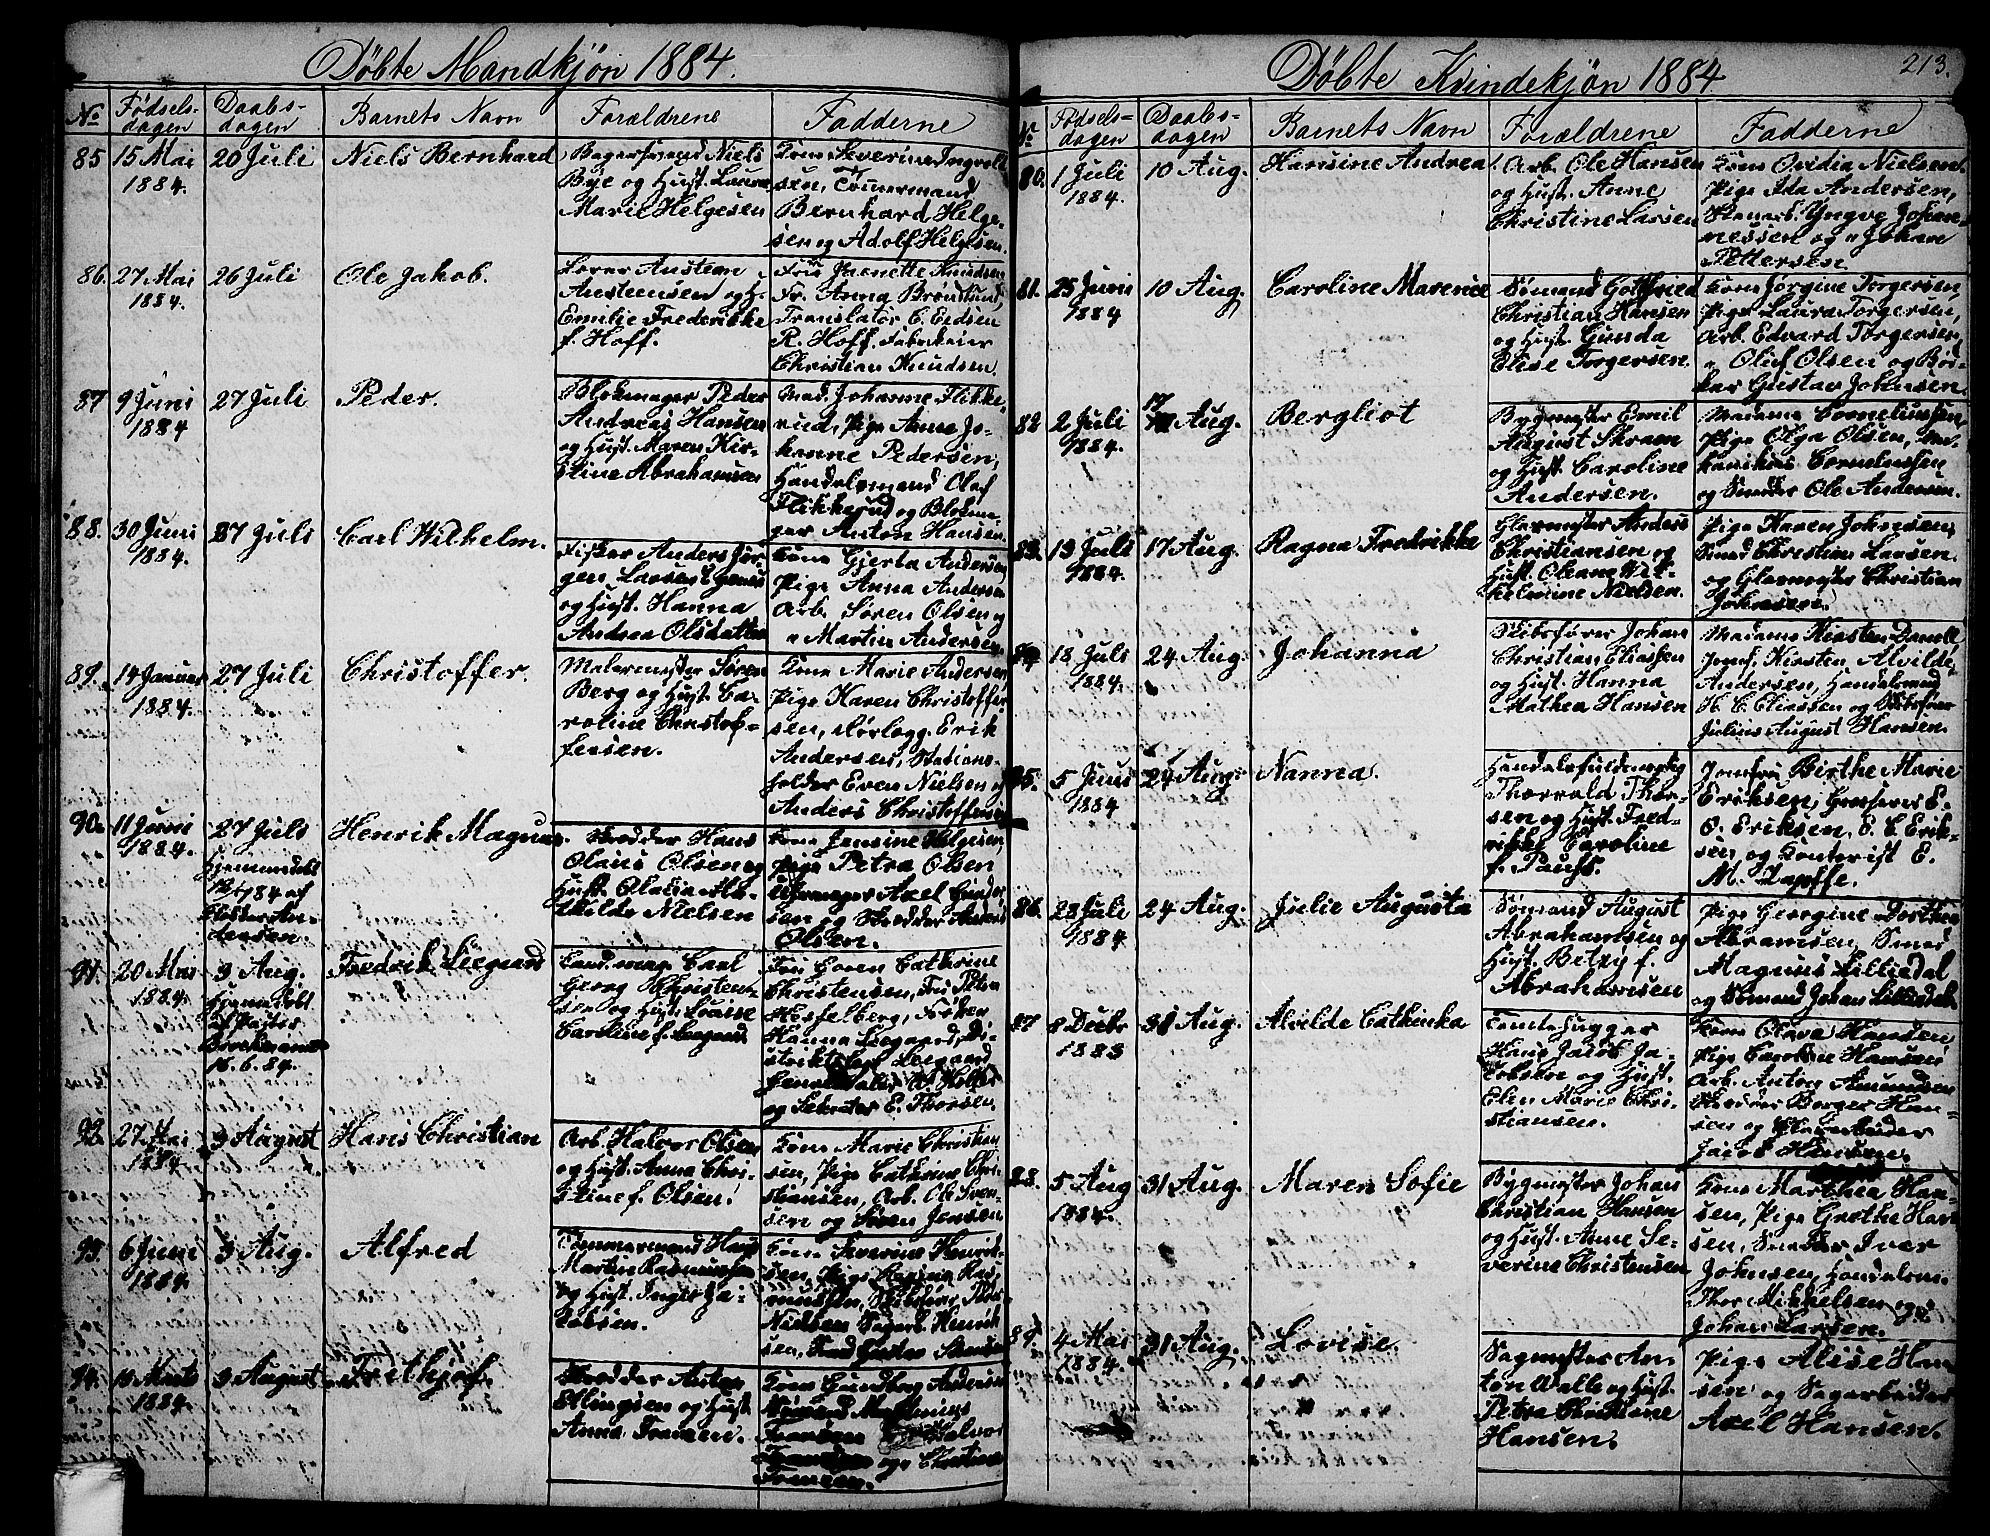 Döbte Mandkjön 1884.
No
Födsels-
dagen
Daabs-
dagen
Barnets Navn
Forældrene
Fadderne
85
15 Mai
1884.
20 Juli
Niels Bernhard
Niels
Bye og Hust. Laura
Marie Helgesen
Kone Severine Ingvold
sen, Tömmermand
Bernhard Helge-
sen og Adolf Helgesen.
86.
27 Mai
1884.
26 Juli
Ole Jakob.
Austeen
Austeensen og H.
Emilie Frederikke
f. Hoff.
Fru Jeanette Knudsen
Fr. Anna Brönlund,
Translatör C. Eedsen
R. Hoff. Fabrikeier
Christian Knudsen.
87
9 Juni
1884
27 Juli
Peder.
Blokmager Peder
Andreas Hansen
og Hust. Maren Kir-
stine Abrahamsen
Mad. Johanne Flikke-
rud, Pige Anna Jo-
hanne Pedersen,
Handelsmand Olaf
Flikkerud og Blokma-
ger Anton Hansen.
88.
30 Juni
1884.
27 Juli
Carl Wilhelm.
Fisker Anders Jör-
gen Larsen
og Hust. Hanna
Andrea Olsdatter
Kone Gjerta Andersen
Pige Anna Andersen
Arb. Sören Olsen og
" Martin Andersen.
89.
14 Januar
1884.
27 Juli
Christoffer.
Malermester Sören
Berg og Hust. Ca-
roline Christof-
fersen.
Kone Marie Andersen
Pige Karen Christoffer
sen, Rörlægg. Erik
Andersen, Stations-
holder Even Nielsen og
Anders Christoffersen
90.
11 Juni
1884.
27 Juli
Hjemmedöbt
84 af
Andersen.
Henrik Magnus.
Skrædder Hans
Olaus Olsen og
Hust. Olalia Ma-
thilde Nielsen
Kone Jensine Helgesen,
Pige Petra Olsen
Axel
sen og Skrædder
Olsen.
91.
20 Mai
1884.
3 Aug.
Hjemmedöbt
af Pastor
Brochmann
16.6.84.
Fredrik Leegaard
Cand. mag. Carl
Georg Christen-
sen og Hust. Louise
Caroline f. Leegaard
Fru Cathrine
Christensen, Fru Petra
Hesselberg, Fröken
Hanna Leegaard, Di-
striktslæge Leegaard,
og Sekretær E. Thorsen.
92.
27 Mai
1884
3 August
Hans Christian
Arb. Halvor Olsen
og Hust. Anna Chri-
stine f. Olsen.
Kone Marie Christian
sen, Pige Cathrine Chri-
stiansen, Arb. Ole Sven-
sen og Sören Jensen
93.
6 Juni
1884.
3 Aug.
Alfred
Tömmermand Hans
Martin Rasmussen
og Hust. Inger Ja-
kobsen.
Kone Severine Henrik-
sen, Pige Ras-
mussen,
Nielsen Sagarb. Henrik
sen,
94.
1884.
3 August
Frithjof.
Skrædder Anton
Ellingsen og Hust.
Anna Franzen.
Kone Gundborg Andersen
Franzen Halvor
og Christian
Franzen.
Döbte Kvindekjön 1884
213.
No
Födsels-
dagen
Daabs-
dagen
Barnets Navn
Forældrene
Fadderne
80.
1 Juli
1884.
10 Aug.
Hansine Andrea
Arb. Ole Hansen
og Hust. Anne
Christine Larsen
Kone Ovidia Nielsen.
Pige Ida Andersen,
Stenarb. Yngve Johan-
nessen og " Johan
Pettersen.
81.
25 Juni
1884
10 Aug.
Caroline Marence
Sömand Gottfried
Christian Hansen
og Hust. Gunda
Elise Torgersen.
Kone Jörgine Torgersen,
Pige Laura Torgersen,
Arb. Edvard Torgersen,
" Oluf Olsen og Bös-
ker Gustav Johnsen
82
2 Juli
1884.
17
Aug.
Bergliot
Bygmester Emil
August Skram
og Hust. Caroline
Andersen.
Madame Corneliussen,
Pige Olga Olsen, Me-
kanikus Corneliussen
og Smeder Ole Andersen.
83.
13 Juli
1884.
17 Aug.
Ragna Fredrikke
Glarmester Anders
Christiansen og
Hust. Oleane Vil-
helmine Nielsen.
Pige Karen Johnsen,
Smed Christian Larsen.
og Glarmester Christian
Johnsen.
84
18 Juli
1884.
24 Aug.
Johanna
Skibsförer Johan
Christian Eliassen
og Hust. Hanna
Mathea Hansen
Madame Kirsten
Jomf. Kirsten Alvilde
Andersen, Handelsmand
H. C. Eliassen og Skibsförer
Julius August Hansen.
85.
5 Juni
1884
24 Aug.
Nanna.
Handelsfuldmægtig
Thorvald Thor-
sen og Hust. Fred-
rikke Caroline
f. Paus.
Jomfru Birthe Marie
Eriksen, Grosserer E.
O. Eriksen, E. C. Erik-
sen, og Kontorist E.
M.
86.
28 Juli
1884
24 Aug.
Julie Augusta
Sömand August
Abrahamsen og
Hust. Betzy f.
Abrahamsen
Pige Georgine Dorthea
Abramsen, Smed
Magnus Lilliedal
og Sömand Johan Lilliedal.
87
8 Decbr
1883
31 Aug.
Alvilde Cathinka
Tomtehugger
Hans Jacob Ja-
cobsen og Hust.
Elen Marie Chri-
stiansen.
Kone Olava Hansen
Pige Caroline Hansen
Arb. Anton Amundsen
Börger Han-
sen og
Jacob Hansen.
88.
5 Aug
1884.
31 Aug.
Maren Sofie
Bygmester Johan
Christian Hansen
og Hust. Anne Se-
verine Christensen
Kone Marthea Han-
sen, Pige Grethe Han
sen, Smeder Iver
Johnsen, Handelsm.
Thor Mikkelsen og
Johan Larsen.
89.
4 Mai
1884.
31 Aug.
Lovise.
Sagmester An-
ton Walle og Hust.
Petra Christiane
Hansen.
Pige Alise Han
sen og Sagarbeider
Axel Hansen.